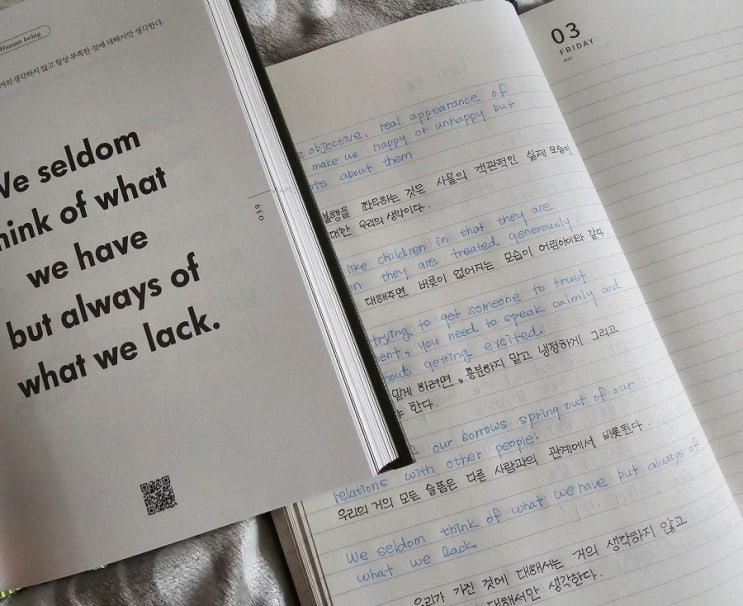 Human being
생각하지 않고 항상 부족한 것에 대해서만 생각한다.
We seldom
think of what
we have
but always of
what we lack.
039
03
FRIDAY
MAY
objective, real appearance of
make us happy or unhappy but
about them
좌우하는 것은 사물의 객관적인 실제 모습이
대한 우리의 생각이다.
like children in that they are
they are treated generously.
대해주면 버릇이 없어지는 모습이 어린아이와 같다
trying to get someone to trust
you need to speak calmly and
getting excited.
믿게 하려면, 흥분하지 말고 냉정하게 그리고
한다.
our sorrows spring out of our
relations with other people.
우리의 거의 모든 슬픔은 다른 사람과의 관계에서 비롯된다.
We seldom think of what we have but always of
what we lack
우리가 가진 것에 대해서는 거의 생각하지 않고
대해서만 생각한다.